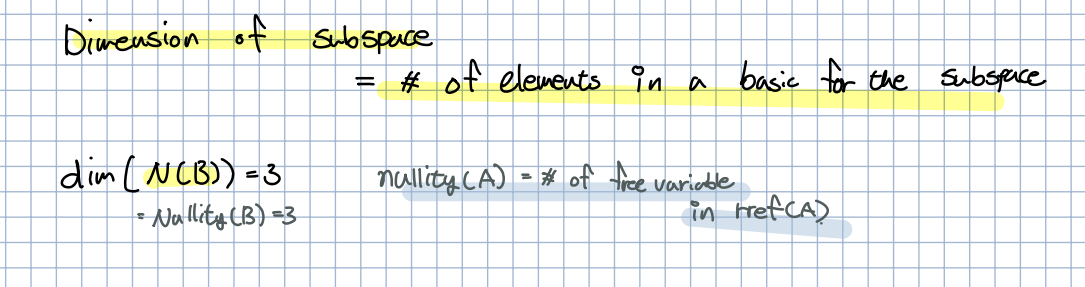 Dimension of subspace
= # of elements in a basic for the subspace
dim(N(B)) = 3
= Nullity(B) = 3
nullity(A) = # of free variable
in rref(A)